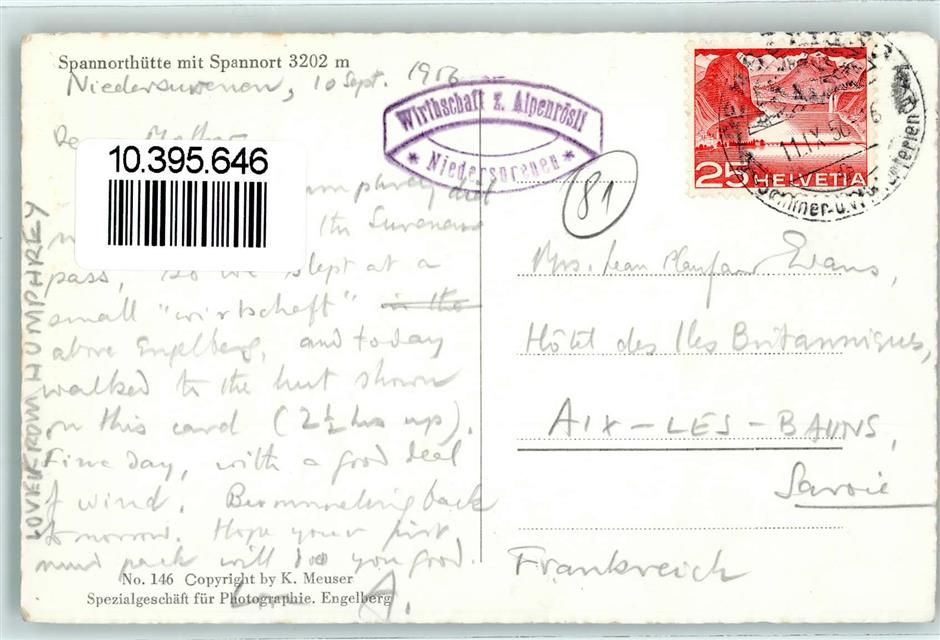 Spannorthütte mit Spannort 3202 m
Niedersurenen, 10 Sept. 1956
Wirthschaft z. Alpenrösli
* Niedersorenen *
25 HELVETIA
11.IX.56
Mother
10.395.646
Humphrey and
the Surenen
pass, so we slept at a
small "wirtschaft" in the
above Engelberg, and today
walked to the hut shown
on this card (2½ hrs up).
Fine day, with a good deal
of wind. back
tomorrow. Hope your first
mud pack will do you good.
Love A.
LOVE FROM HUMPHREY
No. 146 Copyright by K. Meuser
Spezialgeschäft für Photographie. Engelberg
81
Mrs. Evans,
Hôtel des Iles Britanniques,
AIX-LES-BAINS,
Savoie
Frankreich